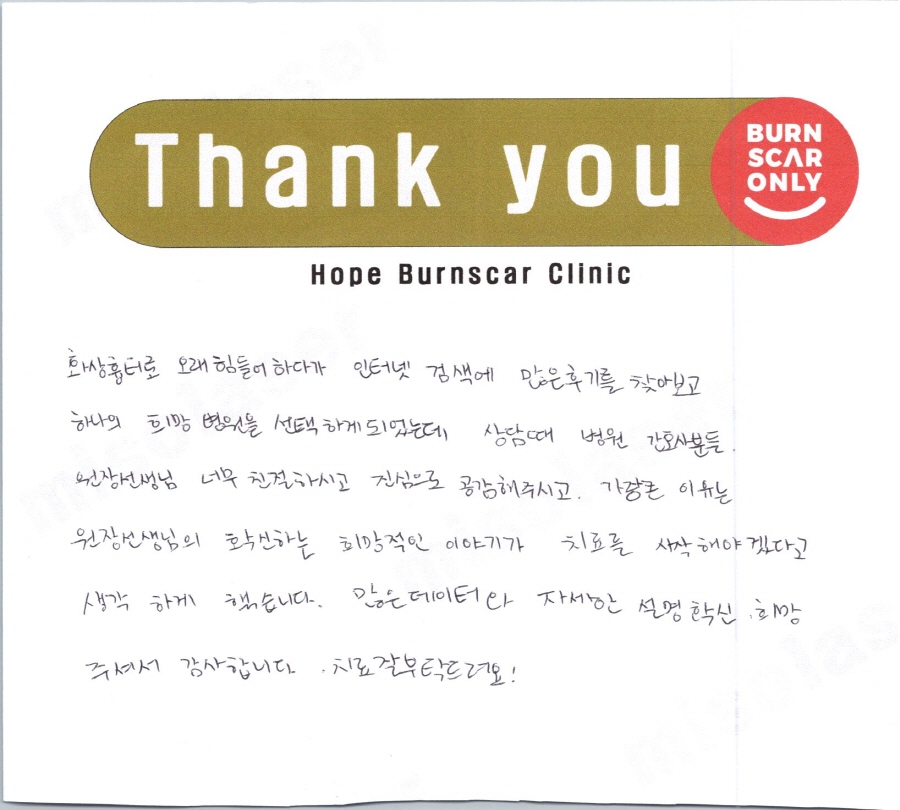 Thank you
BURN
SCAR
ONLY
Hope Burnscar Clinic
화상흉터로 오래힘들어하다가 인터넷 검색에 많은후기를 찾아보고
하나의 희망 병원을 선택하게되었는데, 상담때 병원 간호사분들.
원장선생님 너무 친절하시고 진심으로 공감해주시고. 가장큰 이유는
원장선생님의 확신하는 희망적인 이야기가 치료를 시작해야겠다고
생각 하게 했습니다. 많은데이터와 자세한 설명 확신.희망
주셔서 감사합니다. 치료잘부탁드려요!
misolaser